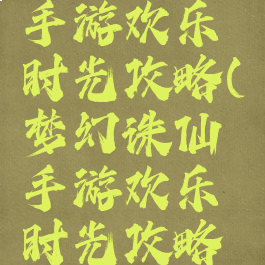 手游欢乐
时光攻略(
梦幻诛仙
手游欢乐
时光攻略